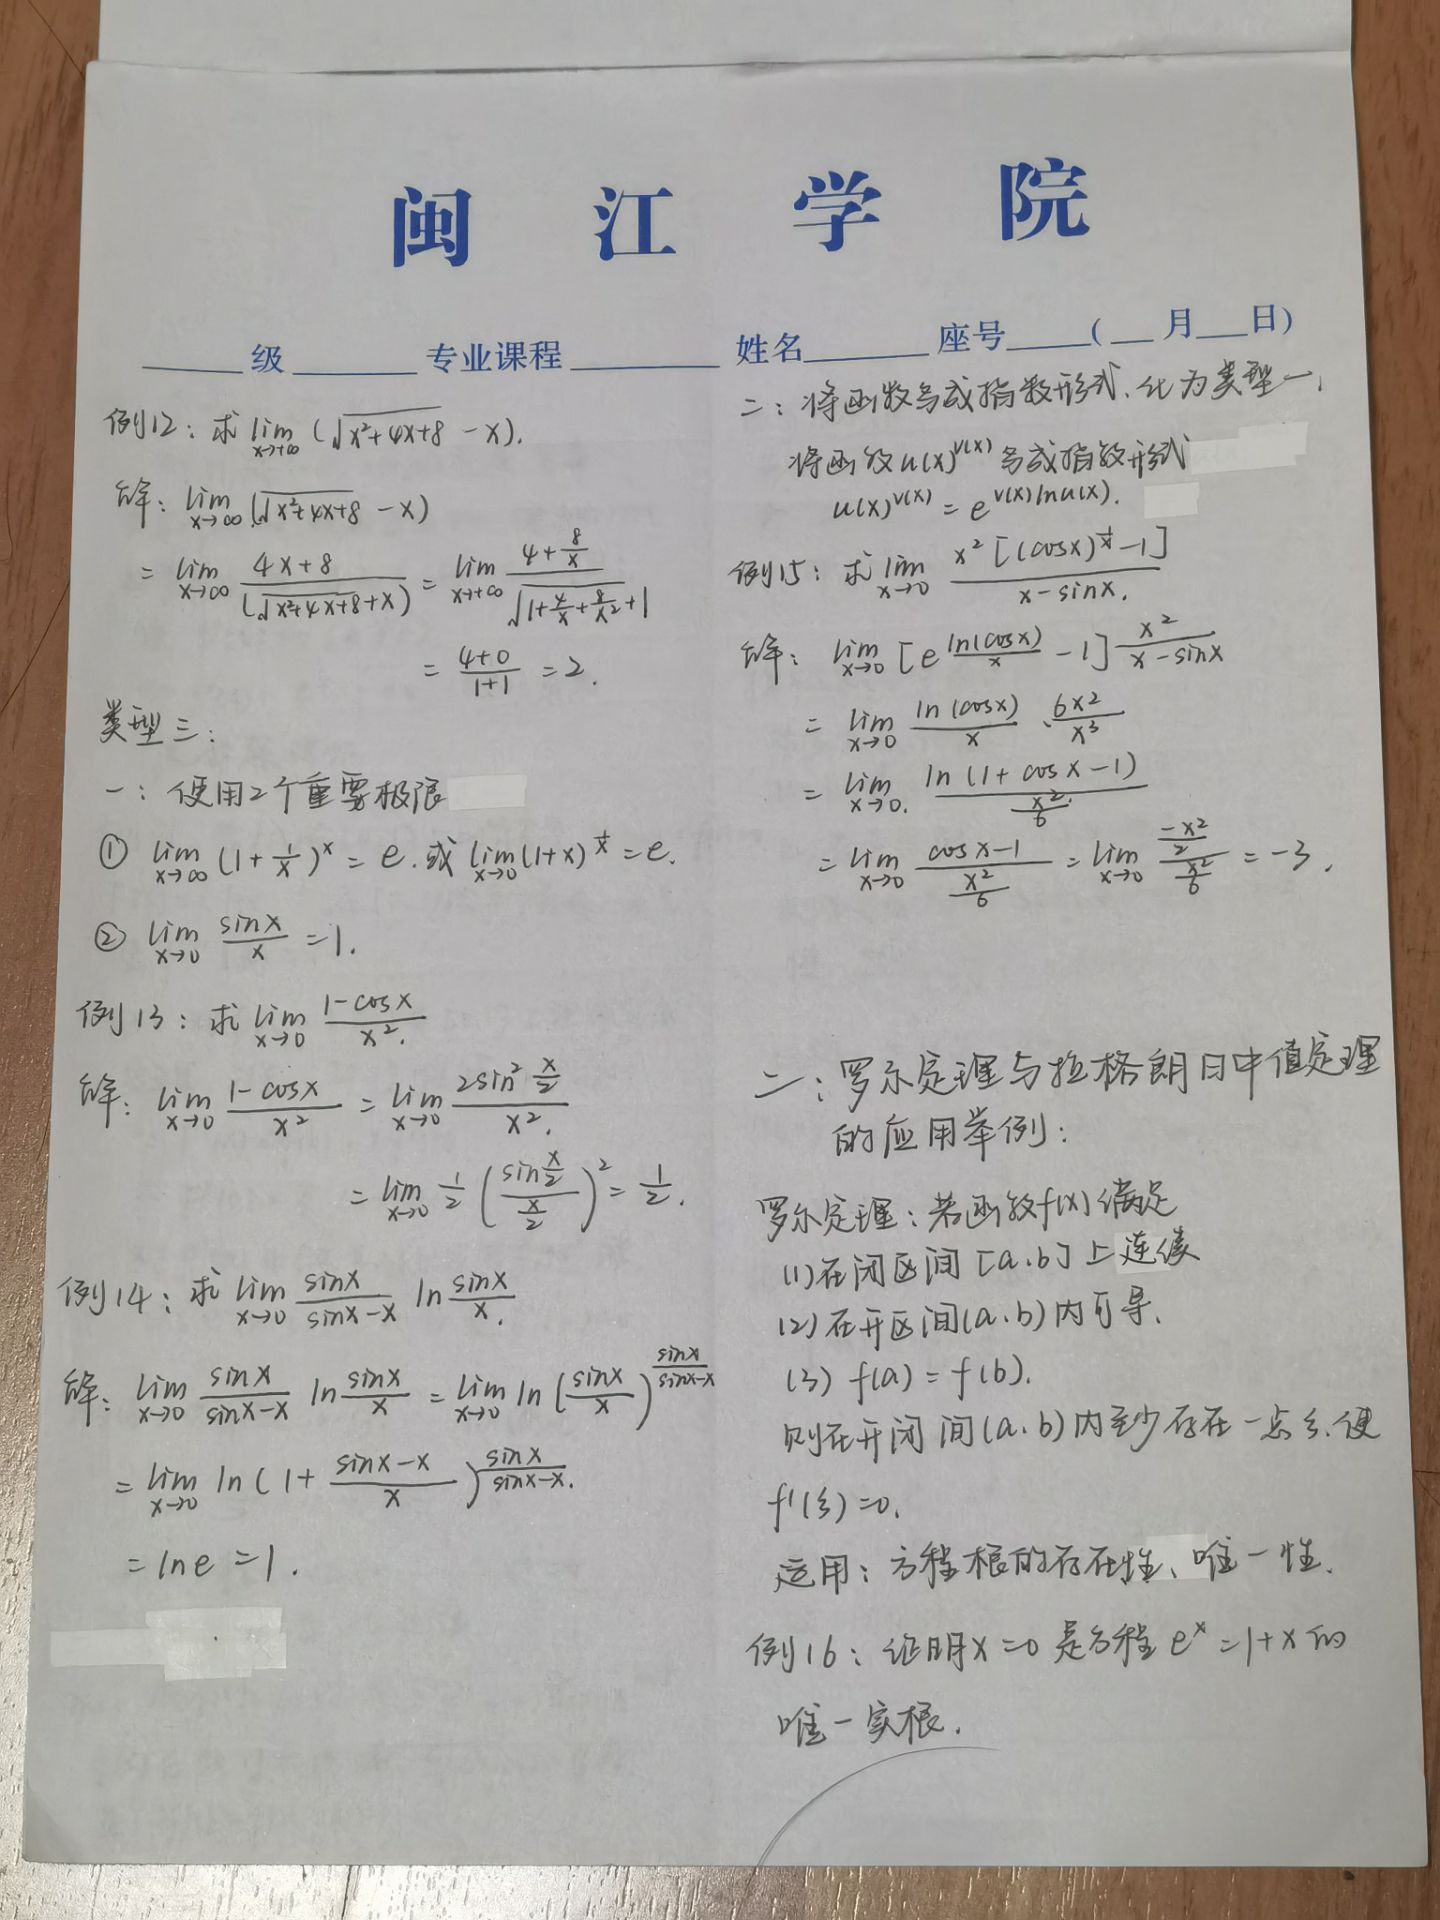 闽江学院
____级______专业课程________ 姓名______座号____(__月__日)
例12：求 lim x→+∞ (√(x²+4x+8) - x).
解：lim x→∞ (√(x²+4x+8) - x)
= lim x→∞ (4x+8)/(√(x²+4x+8)+x) = lim x→+∞ (4+8/x)/(√(1+4/x+8/x²)+1)
= (4+0)/(1+1) = 2.
类型三：
一：使用2个重要极限
① lim x→∞ (1+1/x)^x = e. 或 lim x→0 (1+x)^(1/x) = e.
② lim x→0 sinx/x = 1.
例13：求 lim x→0 (1-cosx)/x².
解：lim x→0 (1-cosx)/x² = lim x→0 (2sin² x/2)/x².
= lim x→0 1/2 (sin(x/2)/(x/2))² = 1/2.
例14：求 lim x→0 sinx/(sinx-x) ln sinx/x.
解：lim x→0 sinx/(sinx-x) ln sinx/x = lim x→0 ln (sinx/x)^(sinx/(sinx-x))
= lim x→0 ln(1+(sinx-x)/x)^(sinx/(sinx-x)).
= lne = 1.
二：将函数写成指数形式、化为类型一，
将函数u(x)^v(x)写成指数形式
u(x)^v(x) = e^(v(x)lnu(x)).
例15：求 lim x→0 x²[(cosx)^(1/x)-1]/(x-sinx).
解：lim x→0 [e^(ln(cosx)/x) - 1] x²/(x-sinx)
= lim x→0 ln(cosx)/x · 6x²/x³
= lim x→0. ln(1+cosx-1)/(x²/6)
= lim x→0 (cosx-1)/(x²/6) = lim x→0 (-x²/2)/(x²/6) = -3.
二：罗尔定理与拉格朗日中值定理
的应用举例：
罗尔定理：若函数f(x)满足
(1)在闭区间[a.b]上连续
(2)在开区间(a.b)内可导.
(3) f(a) = f(b).
则在开闭间(a.b)内至少存在一点ξ.使
f'(ξ)=0.
运用：方程根的存在性、唯一性.
例16：证明x=0是方程e^x=1+x的
唯一实根.